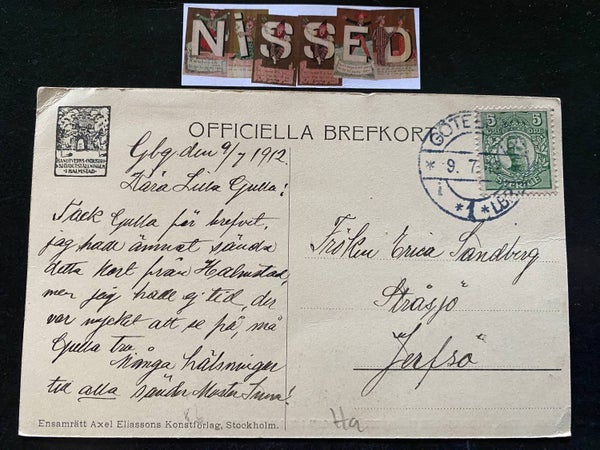 NiSSEO
HANDTVERKS- OCH INDUSTRI
I HALMSTAD
OFFICIELLA BREFKORT
GÖTE
* 9. 7.
*1* LBR
5 5
Gbg den 9/7 1912
Kära Lilla Gulla!
Tack Gulla för brefvet,
jag hade ämnat sända
detta kort från Halmstad,
men jag hade ej tid, der
var mycket att se på, må
Gulla tro
Många hälsningar
til alla sänder Moster Inna!
Fröken Erica Sandberg
Stråsjö
Jerfsö
Ensamrätt Axel Eliassons Konstförlag, Stockholm.
Ha